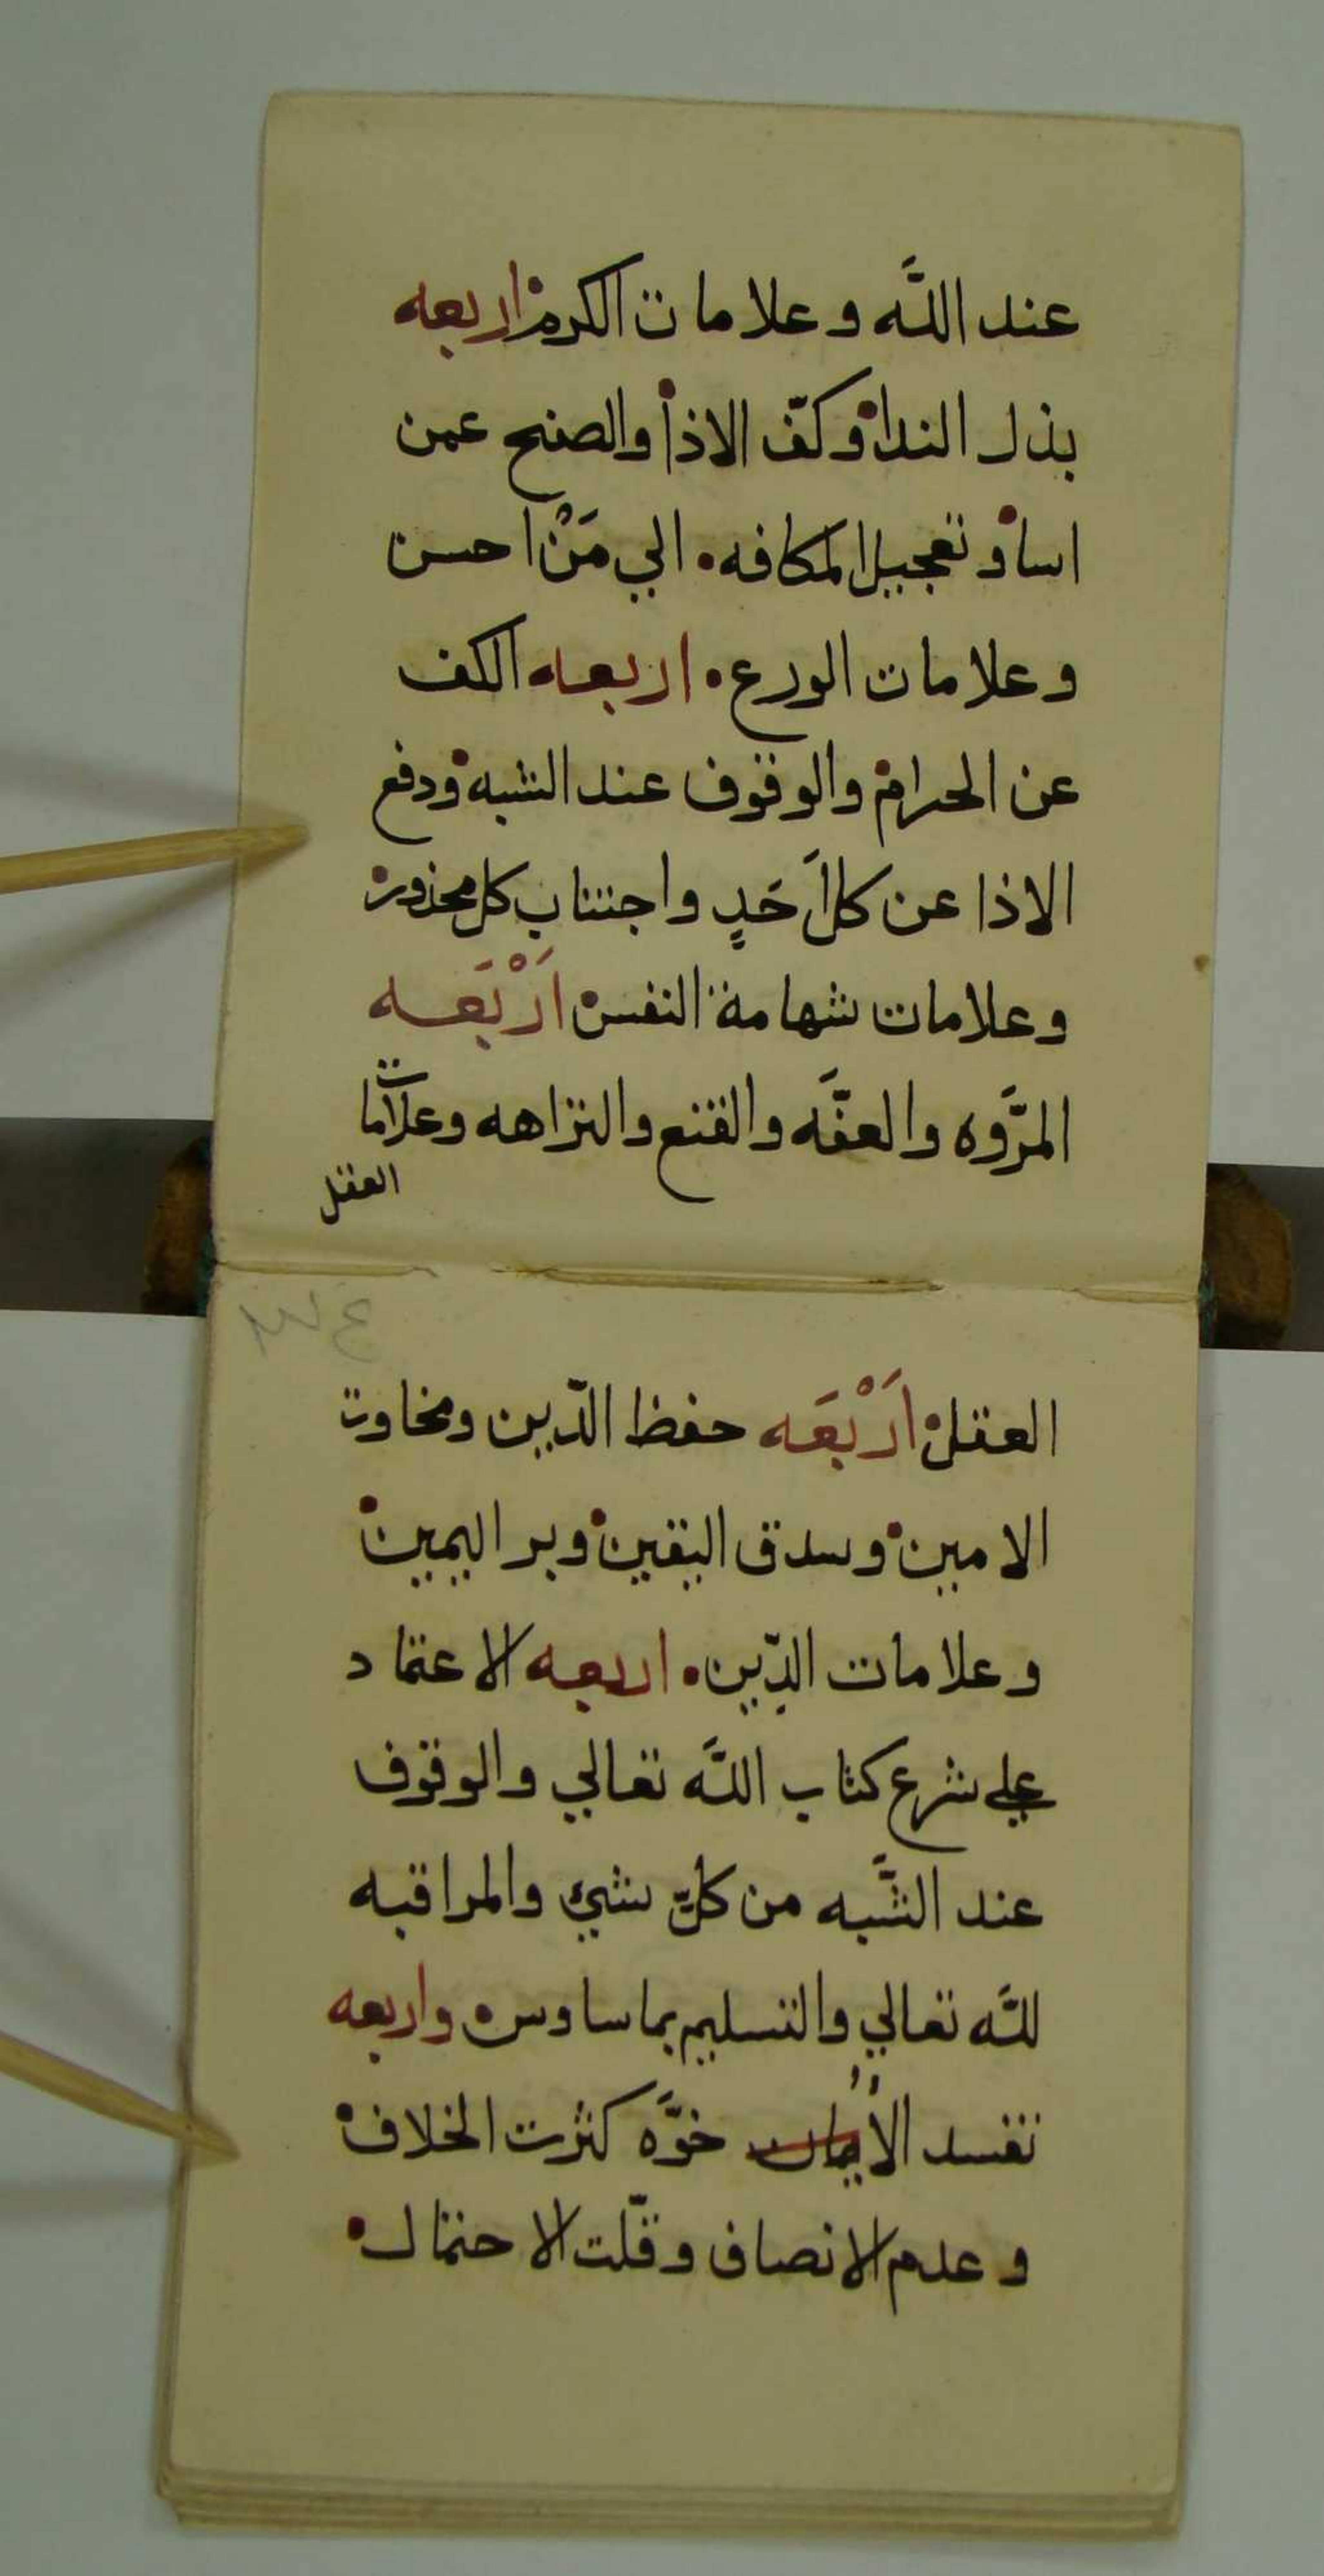 عند اللَّه وعلامات الكرم• اربعه
بذل الندا• وكفّ الاذا• والصفح عمن
اسا• وتعجيل المكافه• الي مَنْ احسن
وعلامات الورع• اربعه الكف
عن الحرام• والوقوف عند الشبه• ودفع
الاذا عن كل اَحَدٍ واجتناب كل محذور•
وعلامات شهامة النفس• اَرْبَعَه
المرَّوه والعفَّه والقنع والنزاهه وعلامات
العقل
العقل• اَرْبَعَه حفظ الدّين ومخاوت
الامين• وسدق اليقين• وبر اليمين•
وعلامات الدّين• اربعه الاعتماد
علي شرع كتاب اللَّه تعالي والوقوف
عند الشَّبه من كلّ شيء والمراقبه
للَّه تعالي والتسليم بما ساوس• واربعه
تفسد الأيمان خوَّه كثرت الخلاف•
وعدم الانصاف وقلّت الاحتمال•